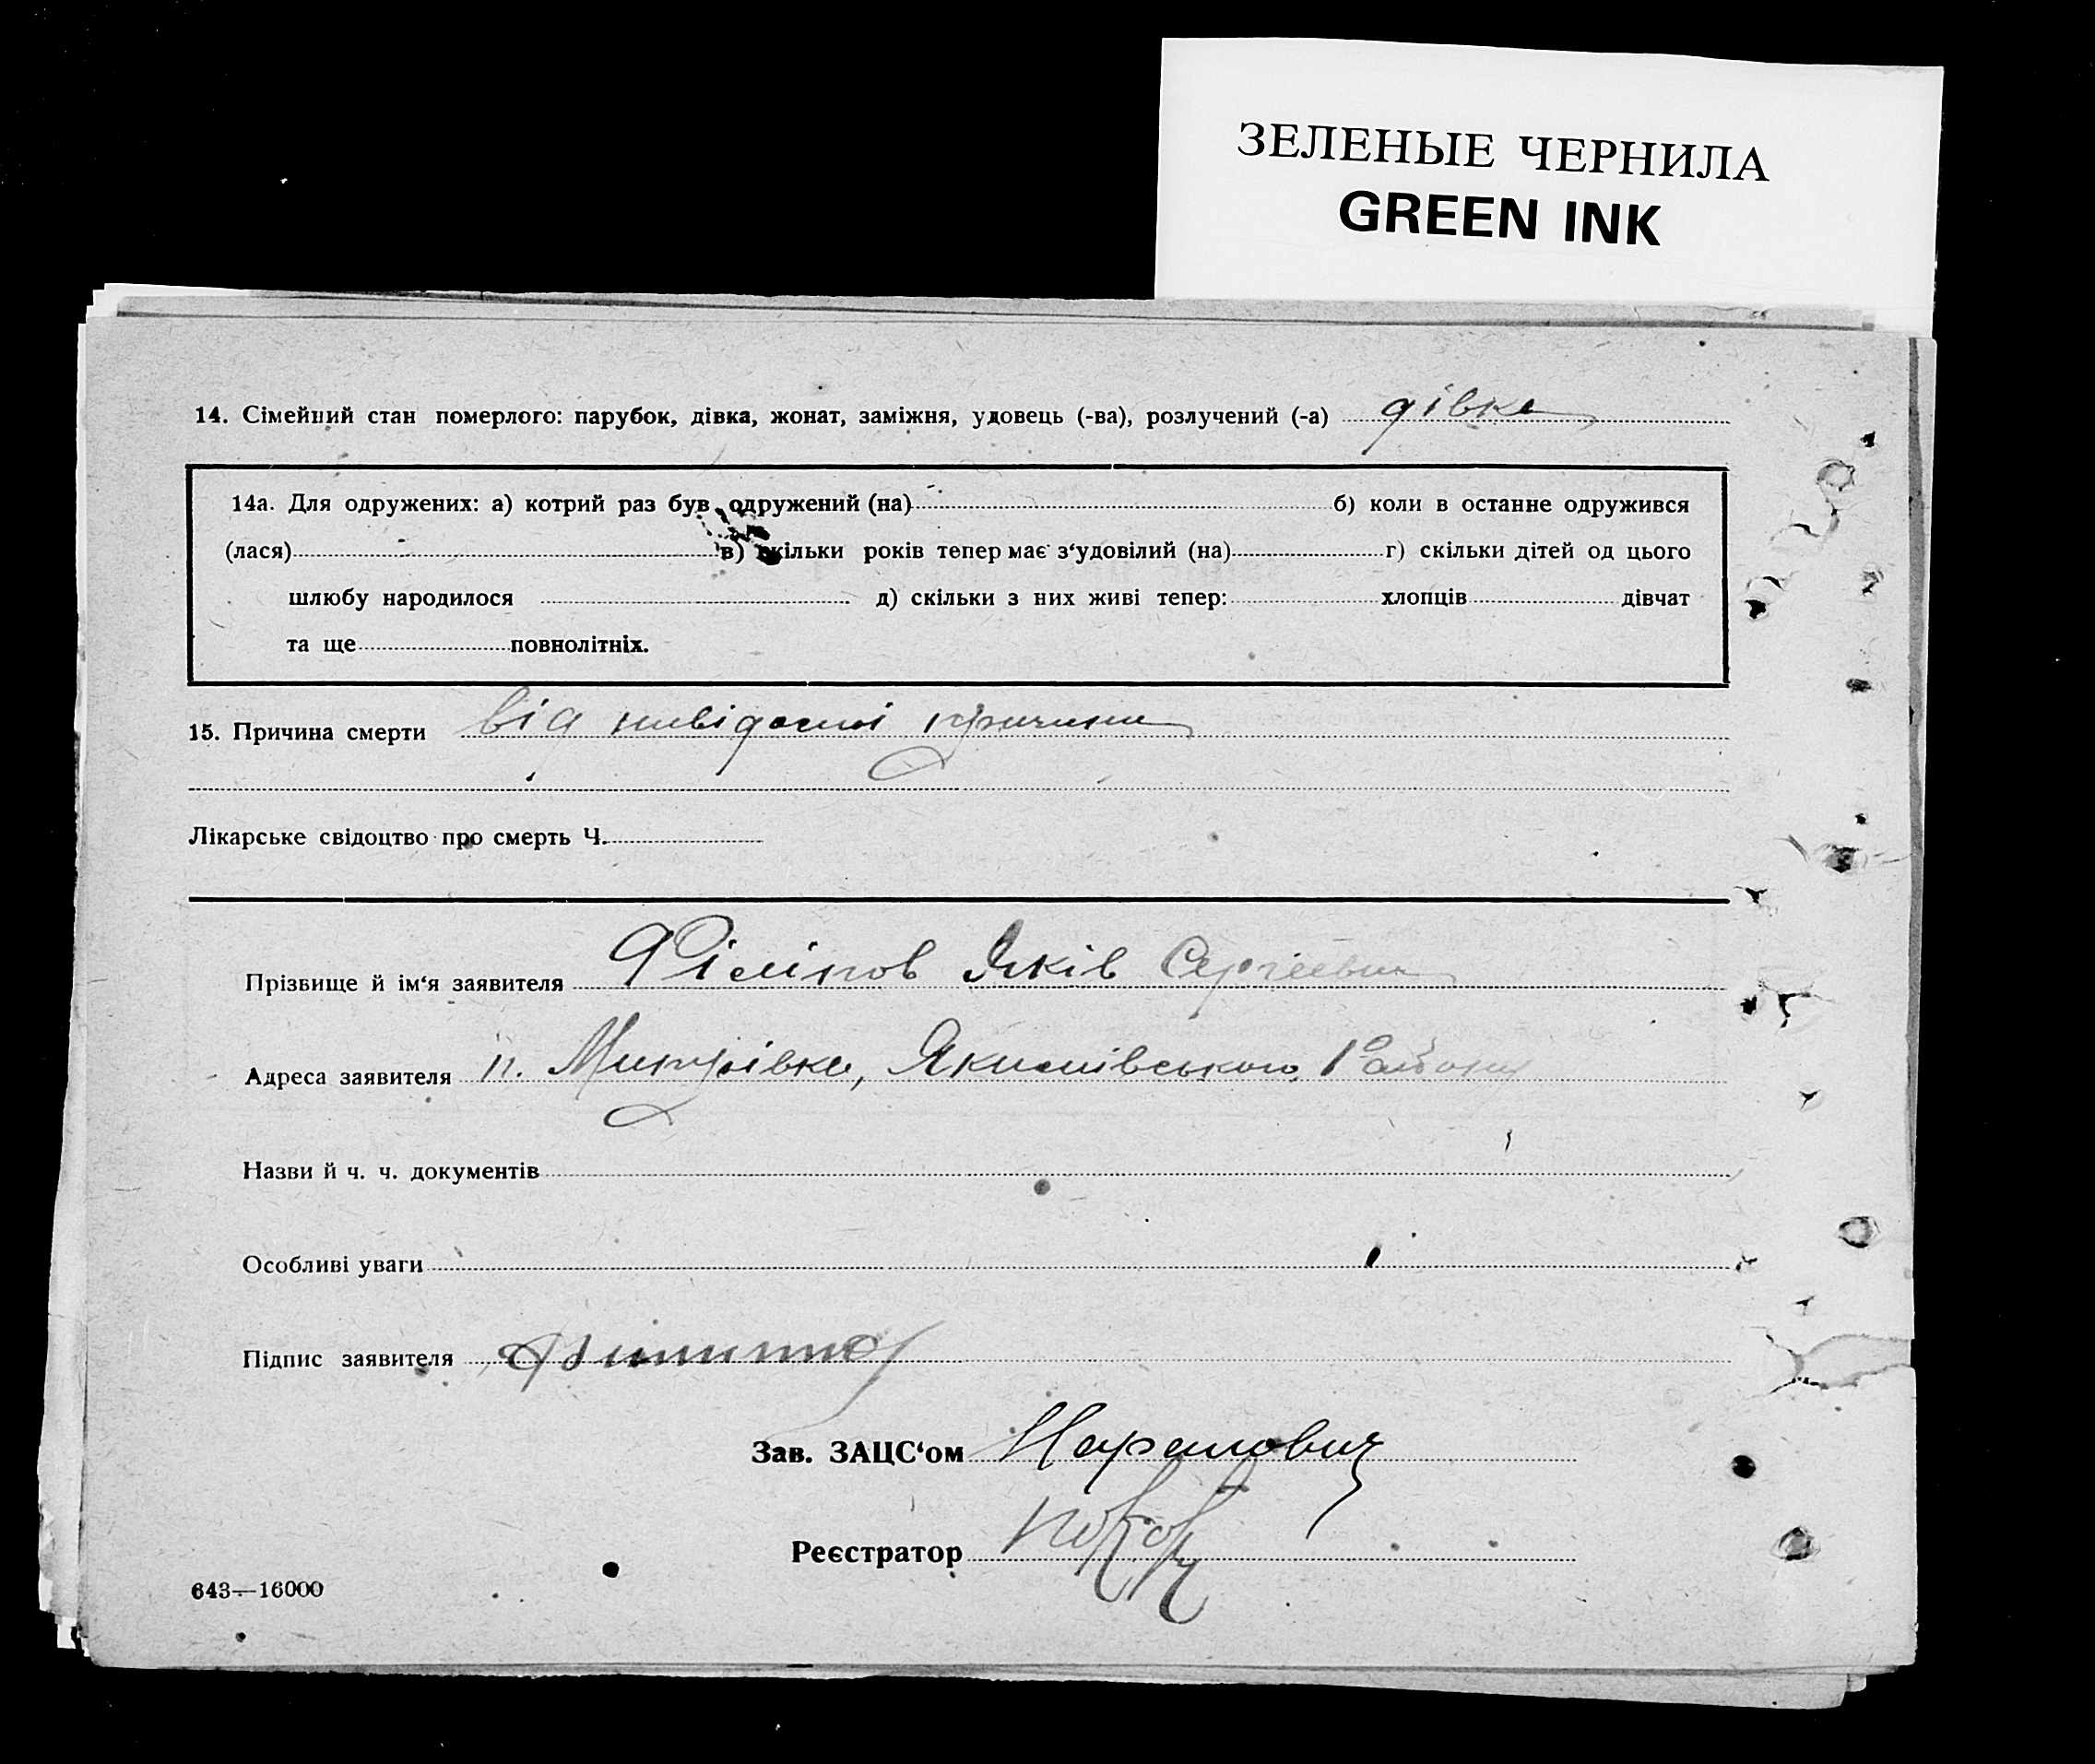 ЗЕЛЕНЫЕ ЧЕРНИЛА
GREEN INK
14. Сімейний стан померлого: парубок, дівка, жонат, заміжня, удовець (-ва), розлучений (-а) дівка
14а. Для одружених: а) котрий раз був одружений (на) б) коли в останне одружився
(лася) в) скільки років тепер має з‘удовілий (на) г) скільки дітей од цього
шлюбу народилося д) скільки з них живі тепер: хлопців дівчат
та ще повнолітніх.
15. Причина смерти від невідомої причини
Лікарське свідоцтво про смерть Ч.
Прізвище й ім‘я заявителя Філіпов Яків Сергієвич
Адреса заявителя п. Митрівка, Якимівського Району
Назви й ч. ч. документів
Особливі уваги
Підпис заявителя
Зав. ЗАЦС‘ом
Реєстратор
643—16000